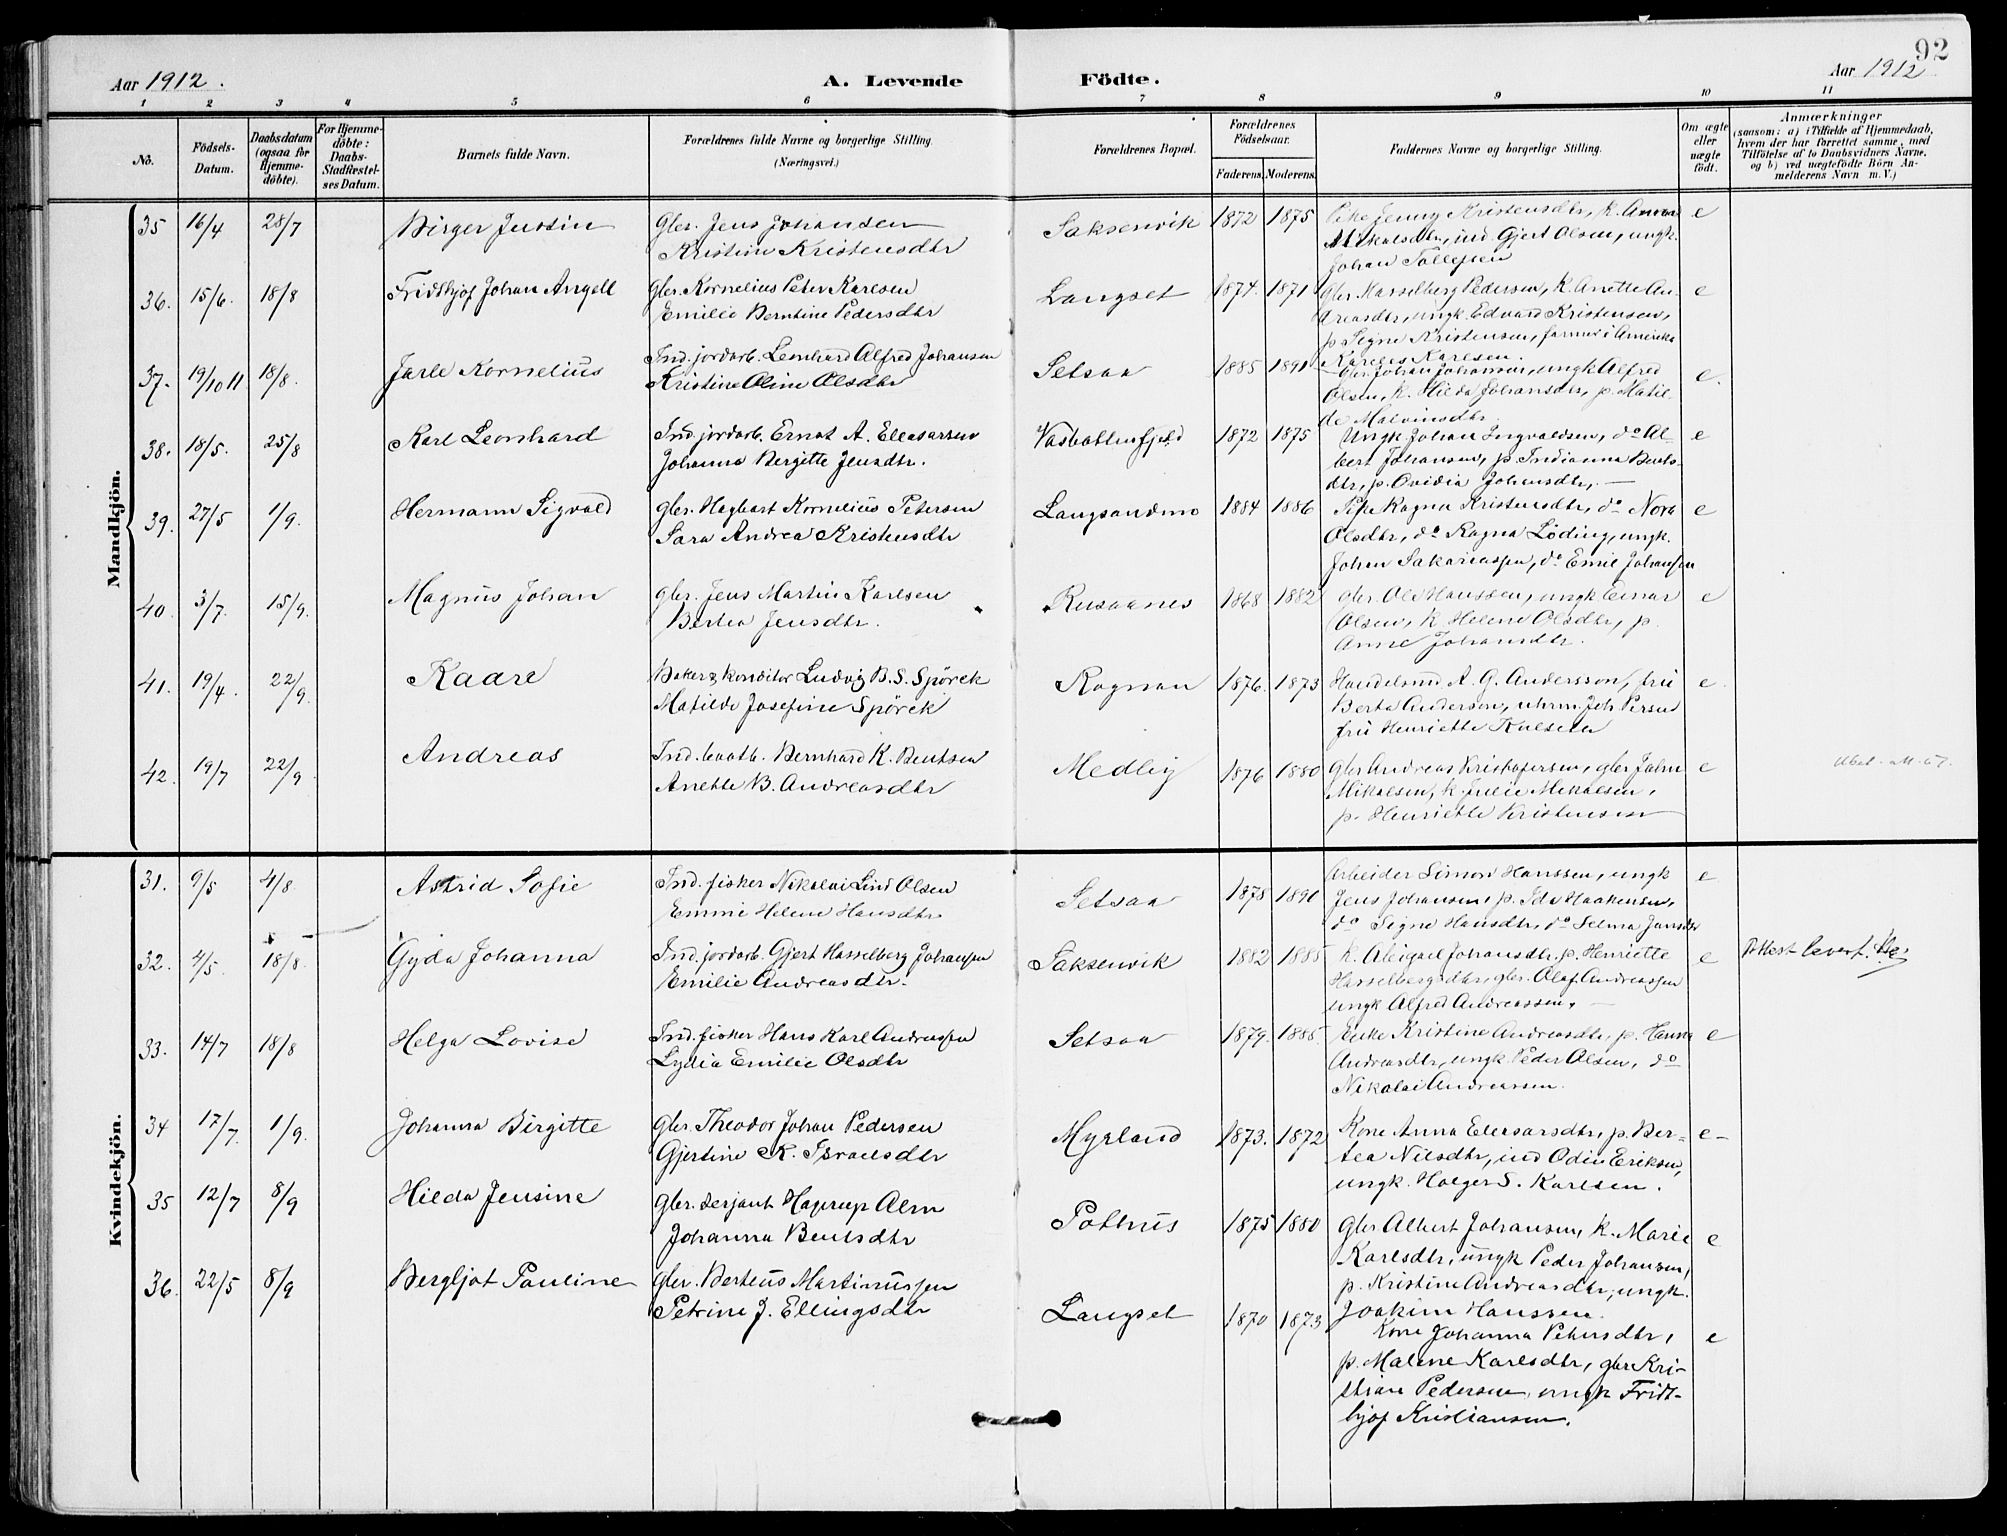 92
Aar 1912. A. Levende Födte. Aar 1912
1 2 3 4 5 6 7 8 9 10 11
No.
Födsels-Datum.
Daabsdatum (ogsaa for Hjemme-döbte).
For Hjemme-döbte: Daabs-Stadfæstel-ses Datum.
Barnets fulde Navn.
Forældrenes fulde Navne og borgerlige Stilling. (Næringsvei.)
Forældrenes Bopæl.
Forældrenes Födselsaar.
Faderens. Moderens.
Faddernes Navne og borgerlige Stilling.
Om ægte eller uægte födt.
Anmærkninger
(saasom: a) i Tilfælde af Hjemmedaab,
hvem der har forrettet samme, med
Tilföielse af to Daabsvidners Navne.
og b) ved uægtefödte Börn An-
melderens Navn m. V.)
Mandkjön.
35 16/4 28/7 Birger Justin Gbr. Jens Johansen Saksenvik 1872 1875 Pike Jenny Kristensdtr, k. Anna e
Kristine Kristensdtr Mikalsdtr, ind. Gjert Olsen, ungk.
Johan Tollefsen
36. 15/6. 18/8 Fridthjof Johan Angell Gbr. Kornelius Peter Karlsen Langset 1874. 1871 Gbr. Hasselberg Pedersen, k. Anette An- e
Emilie Berntine Pedersdtr dreasdtr, ungk. Edvard Kristensen,
p. Signe Kristensen, farmer i Amerika
Karelius Karlsen.
37. 19/10 11 18/8. Jarle Kornelius Ind. jordarb. Leonhard Alfred Johansen Setsaa 1885 1891 Gbr. Johan Johansen, ungk Alfred e.
Kristine Oline Olsdtr Olsen, k. Hilda Johansdtr, p. Matil-
de Malvinsdtr.
38. 18/5. 25/8 Karl Leonhard Ind. jordarb. Ernst A. Eleasarsen Vasbotnfjeld 1872 1875 Ungk. Johan Ingvaldsen, do Al- e
Johanna Bergitte Jensdtr. bert Johansen, p. Indianna Bents-
dtr, p. Ovidia Johnsdtr.
39. 27/5 1/9. Hermann Sigvald Gbr. Hagbart Kornelius Petersen Langsandmo 1884 1886 Pike Ragna Kristensdtr, do Nora e
Sara Andrea Kristensdtr Olsdtr, do Ragna Löding, ungk.
Johan Sakariassen, do Emil Johansen
40. 3/7. 15/9. Magnus Johan Gbr. Jens Martin Karlsen Rusaanes 1868 1882 Gbr. Ole Hanssen, ungk Einar e
Bertea Jensdtr. Olsen, k. Helene Olsdtr, p.
Anne Johansdtr.
41. 19/4. 22/9. Kaare Baker & konditor Ludvig B. S. Spörck Rognan 1876. 1873 Handelsmd A. G. Andersson, fru e
Matilde Josefine Spörck Berta Anderson, uhrm. Joh Persen
fru Henriette Karlsen
42. 19/7 22/9 Andreas Ind. baatb. Bernhard K. Bentsen Medby 1876 1880 Gbr Andreas Kristofersen, gbr John e
Anette B. Andreasdtr Mikalsen, k. Julie Mikalsen,
p. Henriette Kristensen
Kvindekjön.
31. 9/5 4/8 Astrid Sofie Ind. fisker Nikolai Lind Olsen Setsaa 1878 1890 Arbeider Simon Hanssen, ungk e
Emmie Helene Hansdtr Jens Johansen, p. Ida Haakensen,
do Signe Hansdtr, do Selma Jansdtr
32. 4/5. 18/8 Gyda Johanna Ind. jordarb. Gjert Hasselberg Johansen Saksenvik 1882 1885 k. Abigael Johansdtr, p. Henriette e Attest levert.
Emilie Andreasdtr. Hasselbergsdtr, gbr. Olaf Andreassen
ungk Alfred Andreassen.
33. 14/7 18/8 Helga Lovise Ind. fisker Hans Karl Andreassen Setsaa 1879. 1885. Enke Kristine Andreasdtr, p. Hanna e
Lydia Emilie Olsdtr Andreasdtr, ungk. Peder Olsen, do
Nikolai Andreassen.
34 17/7. 1/9. Johanna Birgitte Gbr. Theodor Johan Pedersen Myrland 1873. 1872 Kone Anna Eleasarsdtr, p. Ber- e-
Gjertine K. Israelsdtr tea Nilsdtr, ind Odin Eriksen,
ungk. Holger S. Karlsen.
35 12/7 8/9 Hilda Jensine Gbr. serjant Hagerup Alm Pothus 1875 1880 Gbr Albert Johansen, k. Marie e
Johanna Bentsdtr Karlsdtr, ungk Peder Johansen,
p. Kristine Andreasdtr, ungk.
Joakim Hanssen.
36. 22/5 8/9 Bergljot Pauline Gbr. Berteus Martinussen Langset 1870 1873 Kone Johanna Petersdtr, e
Petrine J. Ellingsdtr p. Malene Karlsdtr, gbr Kri-
stian Pedersen, ungk Fridt-
hjof Kristiansen.